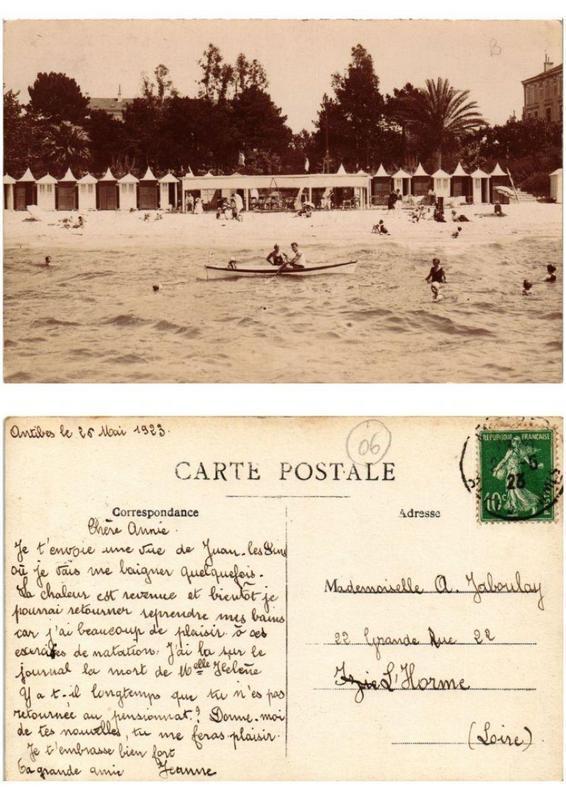 B
Antibes le 26 Mai 1923.
06
CARTE POSTALE
REPUBLIQUE FRANÇAISE
23
10c
POSTES
Correspondance
Adresse
Chère Annie.
Je t'envoie une vue de Juan-les-Pins
où je vais me baigner quelquefois.
La chaleur est revenue et bientôt je
pourrai retourner reprendre mes bains
car j'ai beaucoup de plaisir à ces
exercices de natation. J'ai lu sur le
journal la mort de Melle Helène
Y a t-il longtemps que tu n'es pas
retournée au pensionnat? Donne-moi
de tes nouvelles, tu me feras plaisir.
Je t'embrasse bien fort
Ta grande amie Jeanne
Mademoiselle A. Jaboulay
22 Grande Rue 22
L'Horme
(Loire)